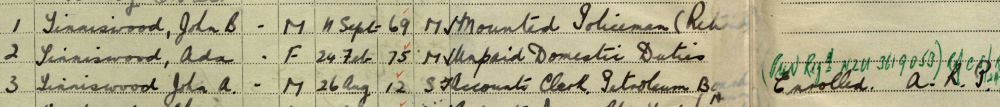 1 Tinniswood, John B - M 11 Sept 69 M Mounted Policeman (Reti
2 Tinniswood, Ada - F 24 Feb 75 M Unpaid Domestic Duties
3 Tinniswood John A. - M 26 Aug 12 S Accounts Clerk, Petroleum Bo Enrolled. A. R. P.